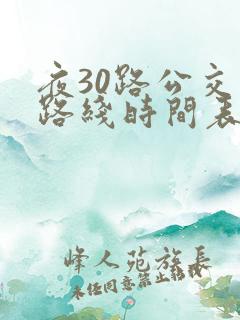 夜30路公交
路綫時間表
峰人苑族長
未经同意禁止转载